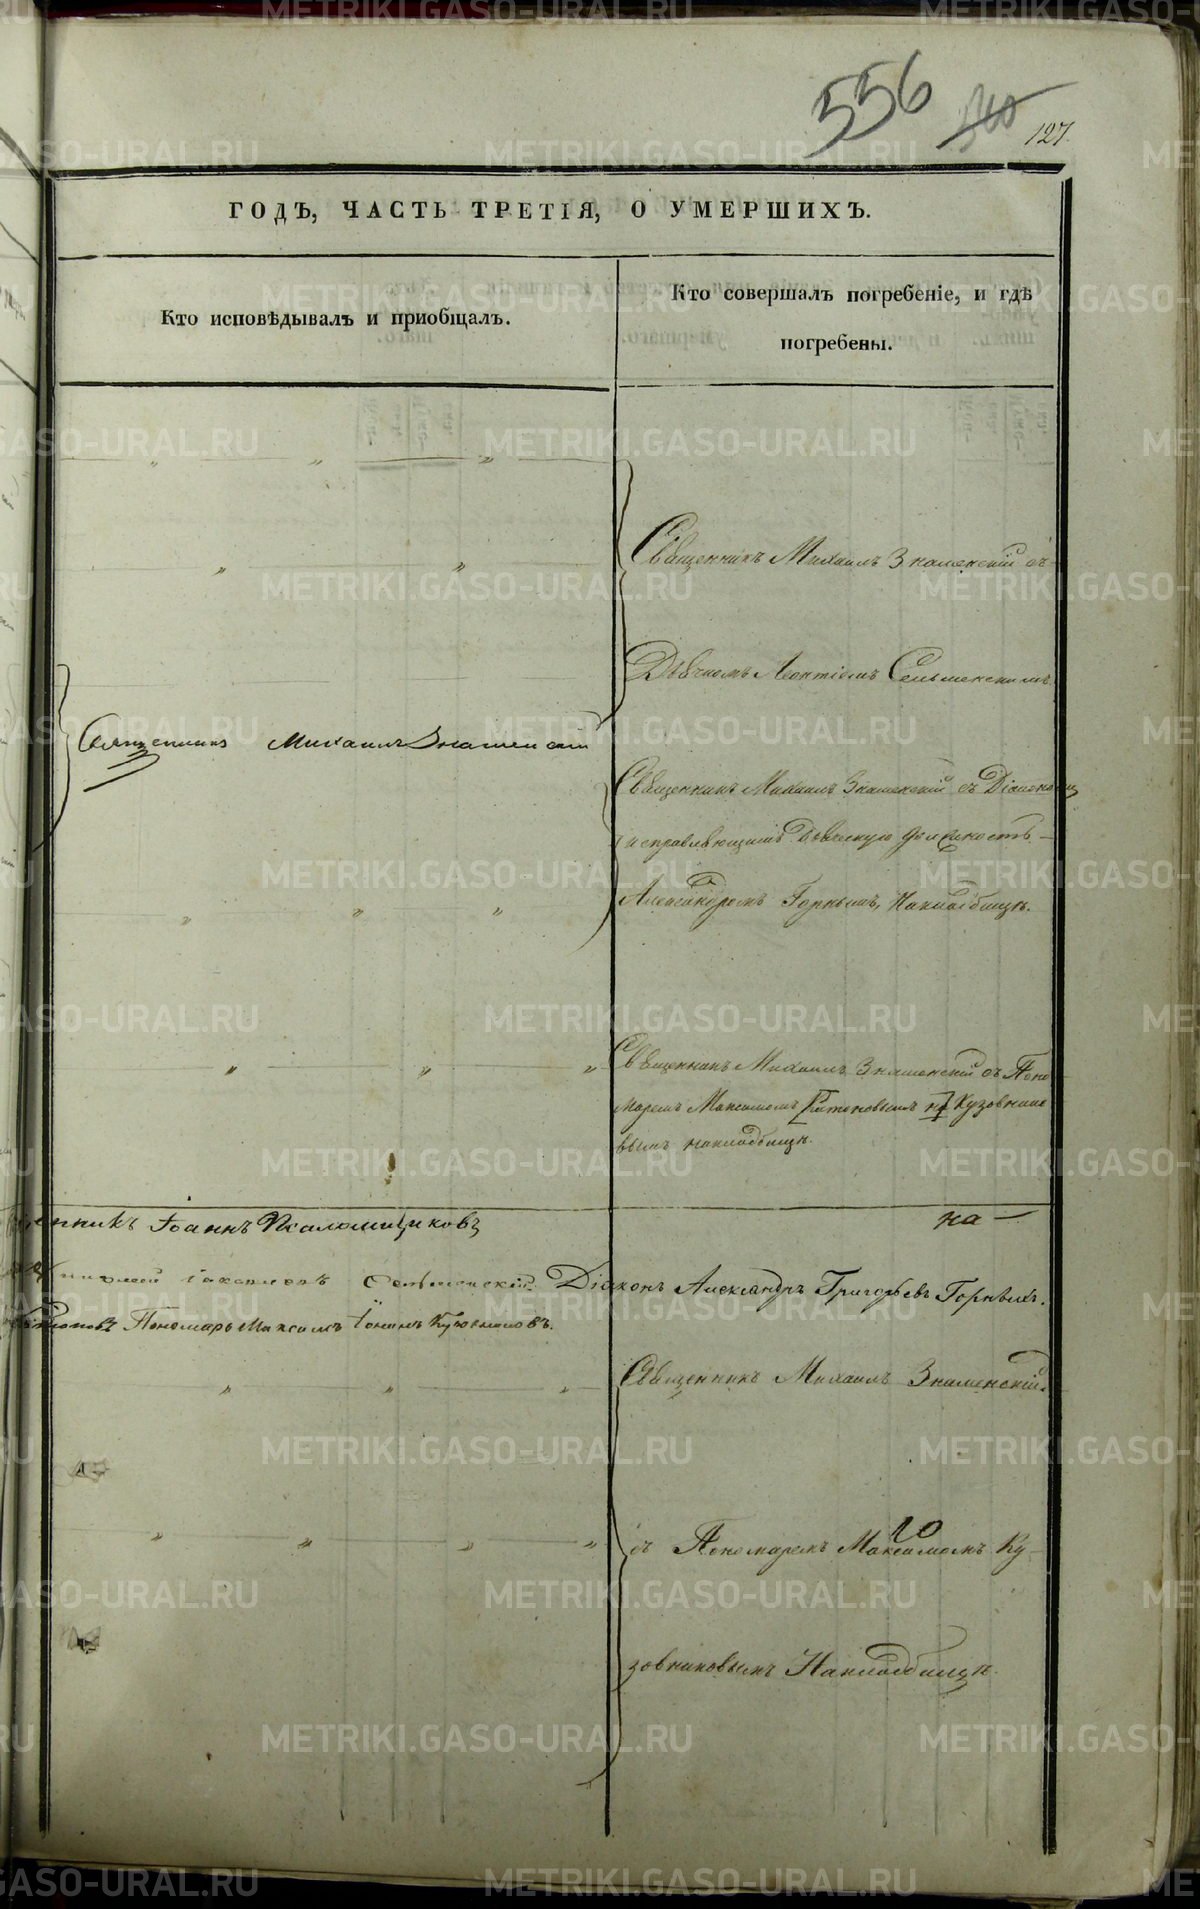 556 127.
ГОДЪ, ЧАСТЬ ТРЕТІЯ, О УМЕРШИХЪ.
Кто исповѣдывалъ и пріобщалъ.
Кто совершалъ погребеніе, и гдѣ
погребены.
Священникъ Михаилъ Знаменскій съ
Дьячкомъ Леонтіемъ Сельменскимъ
Священникъ Михаилъ Знаменскій
Священникъ Михаилъ Знаменскій съ Діакономъ
исправляющимъ дьяческую должность
Александромъ Горныхъ, На кладбищѣ.
Священникъ Михаилъ Знаменскій съ Поно
маремъ Максимомъ на Кузовнико
вымъ на кладбищѣ.
Іоаннъ Псаломщиковъ на
Сельменскій Діаконъ Александръ Григорьевъ Горныхъ.
Пономарь Максимъ Кузовниковъ.
Священникъ Михаилъ Знаменскій
съ Пономаремъ Максимомъ Ку
зовниковымъ На кладбищѣ.
METRIKI.GASO-URAL.RU